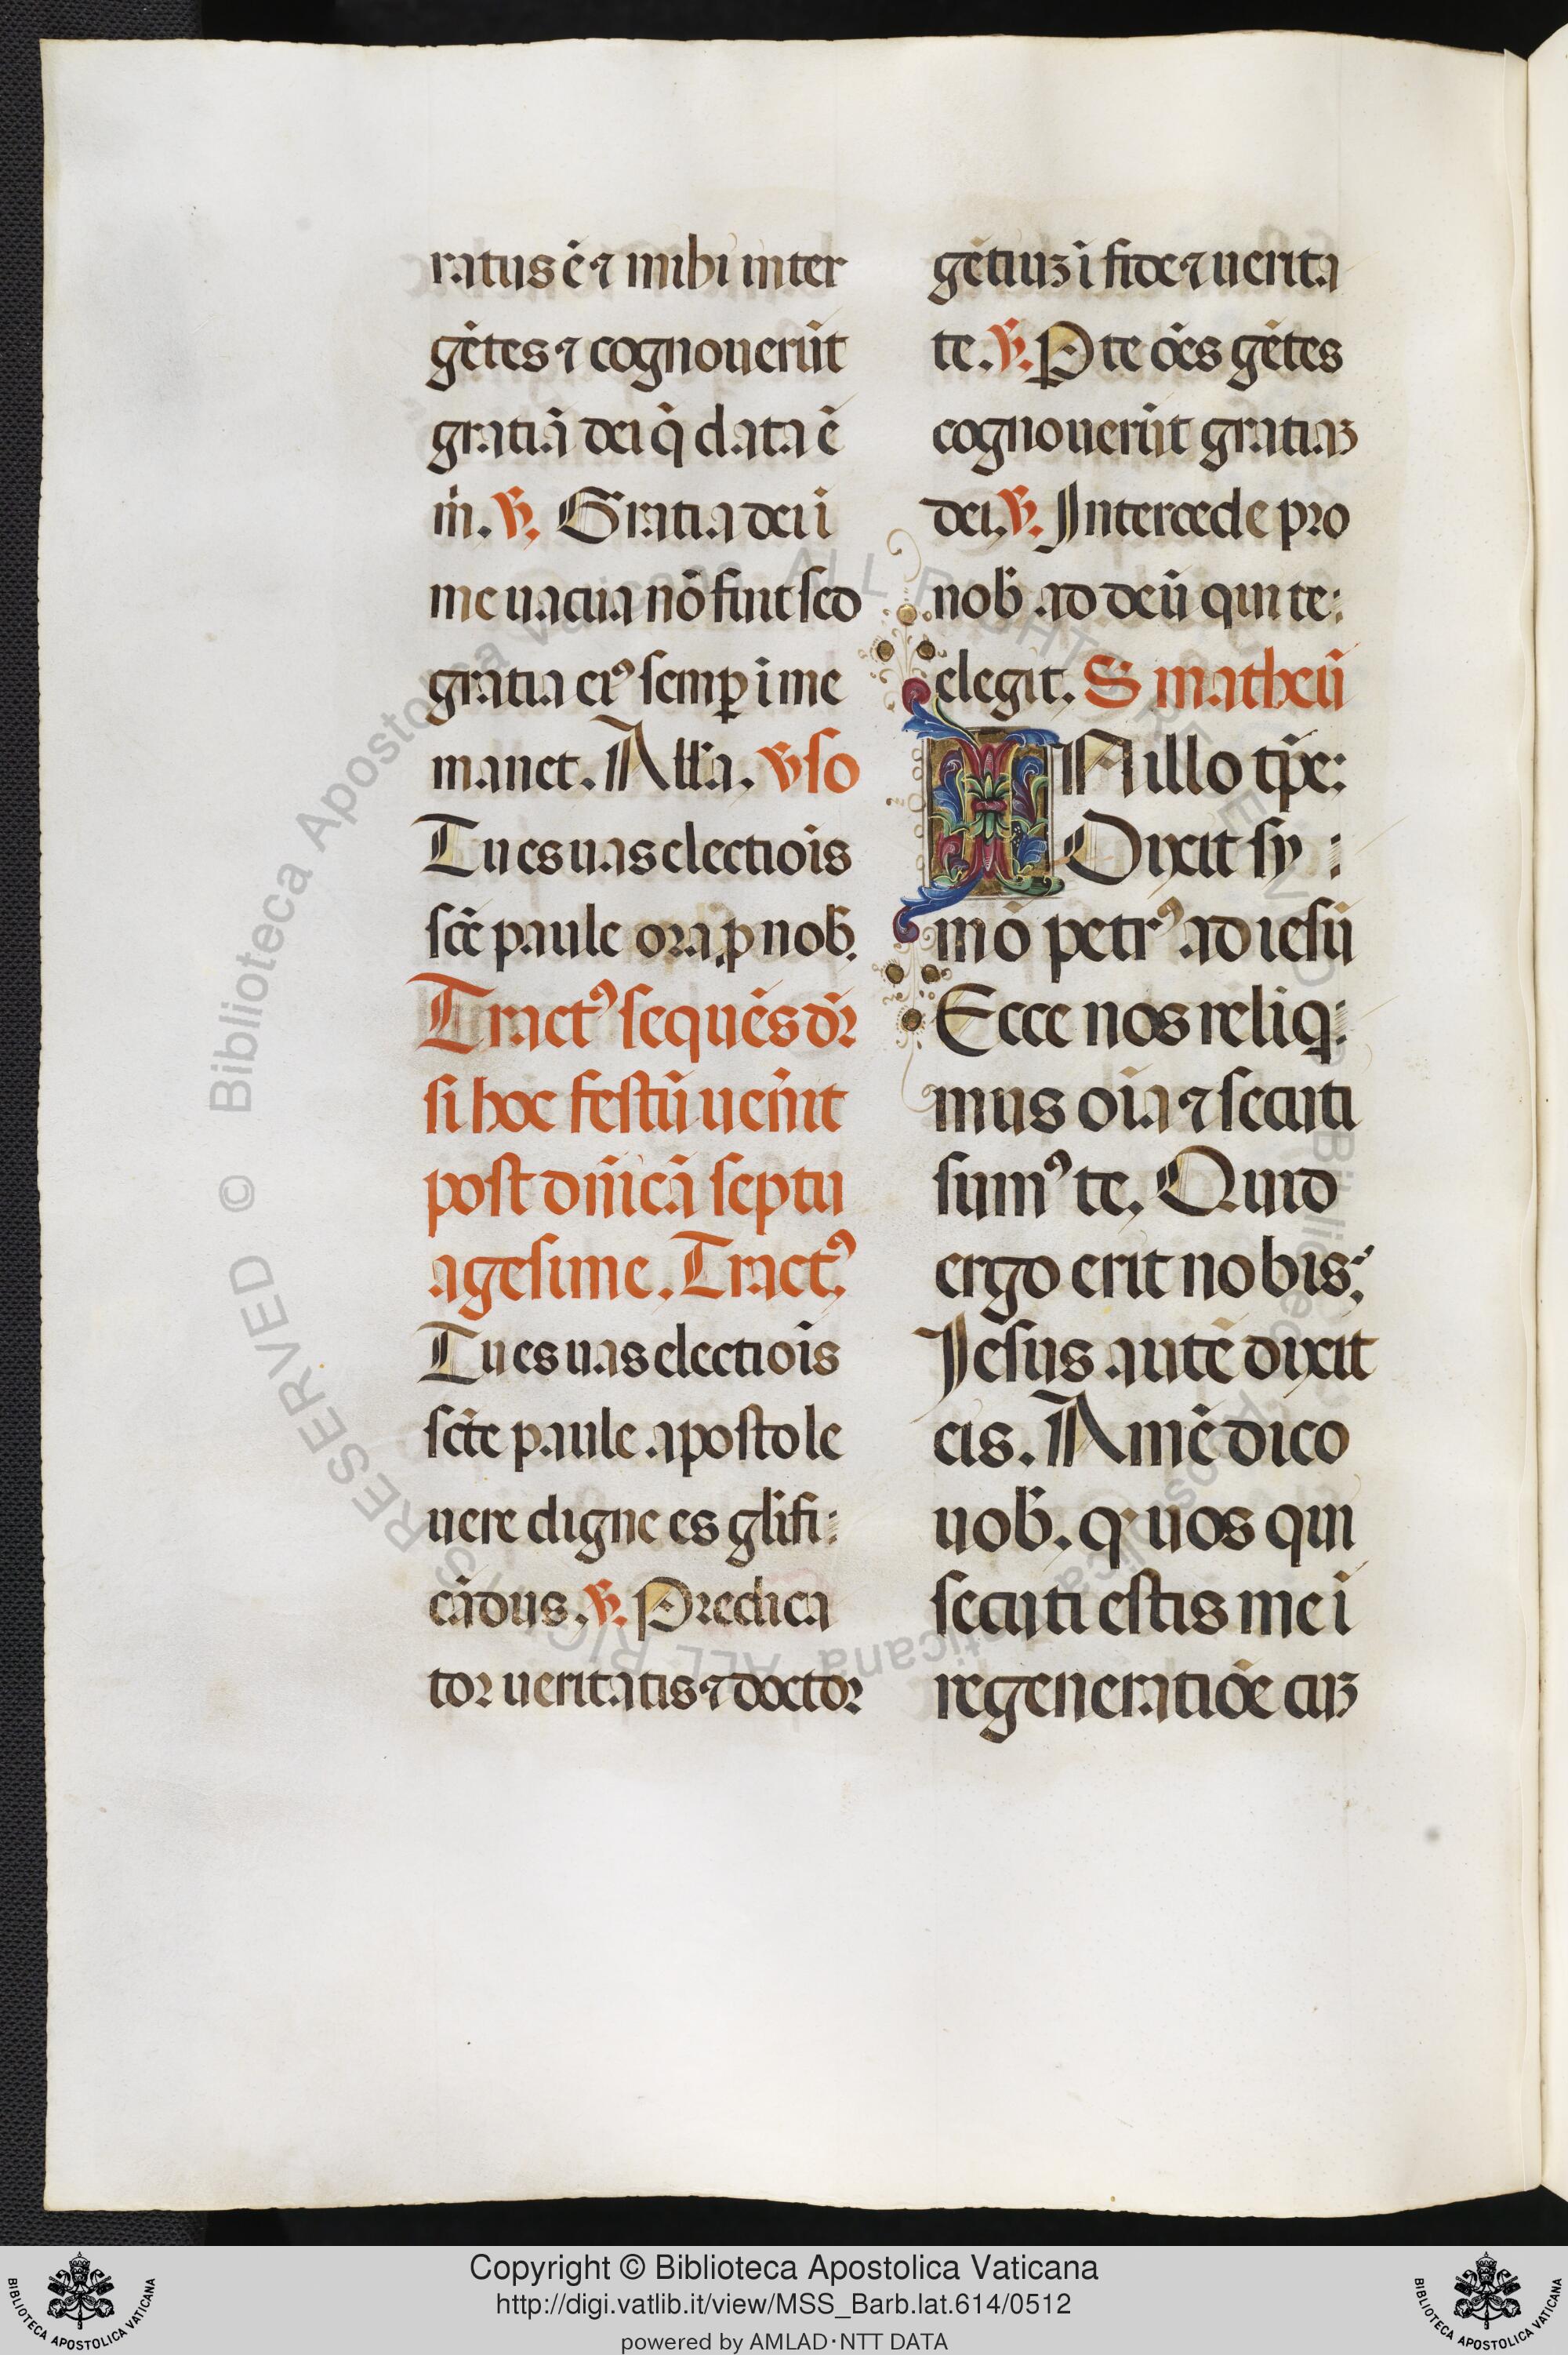 ratus ē ⁊ mihi inter
gētes ⁊ cognouerūt
gratiā dei q̄ data ē
m̄. ℣. Gratia dei ī
me uacua nō fuit sed
gratia eiꝰ semꝑ i me
manet. All̄a. ℣so
Tu es uas electiōis
scē paule ora ꝓ nob̄.
Tractꝰ sequēs dr̄
si hoc festū uen̄it
post dn̄icā septu
agesime. Tractꝰ.
Tu es uas electiōis
scē̄te paule apostole
uere digne es gl̄ifi:
cādus. ℣. Predica
tor ueritatis ⁊ doctor
gētiuꝫ ī fide ⁊ uerita
te. ℣. P te oēs gētes
cognouerūt gratiaꝫ
dei. ℣. Intercede pro
nob̄ ad deū qui te:
elegit. S matheū
IN illo tp̄e:
Dixit sy:
mō petrꝰ ad iesū
Ecce nos reliq:
mus oīa ⁊ secuti
sumꝰ te. Quid
ergo erit nobis;
Jesus autē dixit
eis. Amē dico
uob̄. ꝙ uos qui
secuti estis me ī
regeneratiōe cuꝫ
© Biblioteca Apostolica Vaticana ALL RIGHTS RESERVED
Copyright © Biblioteca Apostolica Vaticana
http://digi.vatlib.it/view/MSS_Barb.lat.614/0512
powered by AMLAD·NTT DATA
BIBLIOTECA APOSTOLICA VATICANA
BIBLIOTECA APOSTOLICA VATICANA